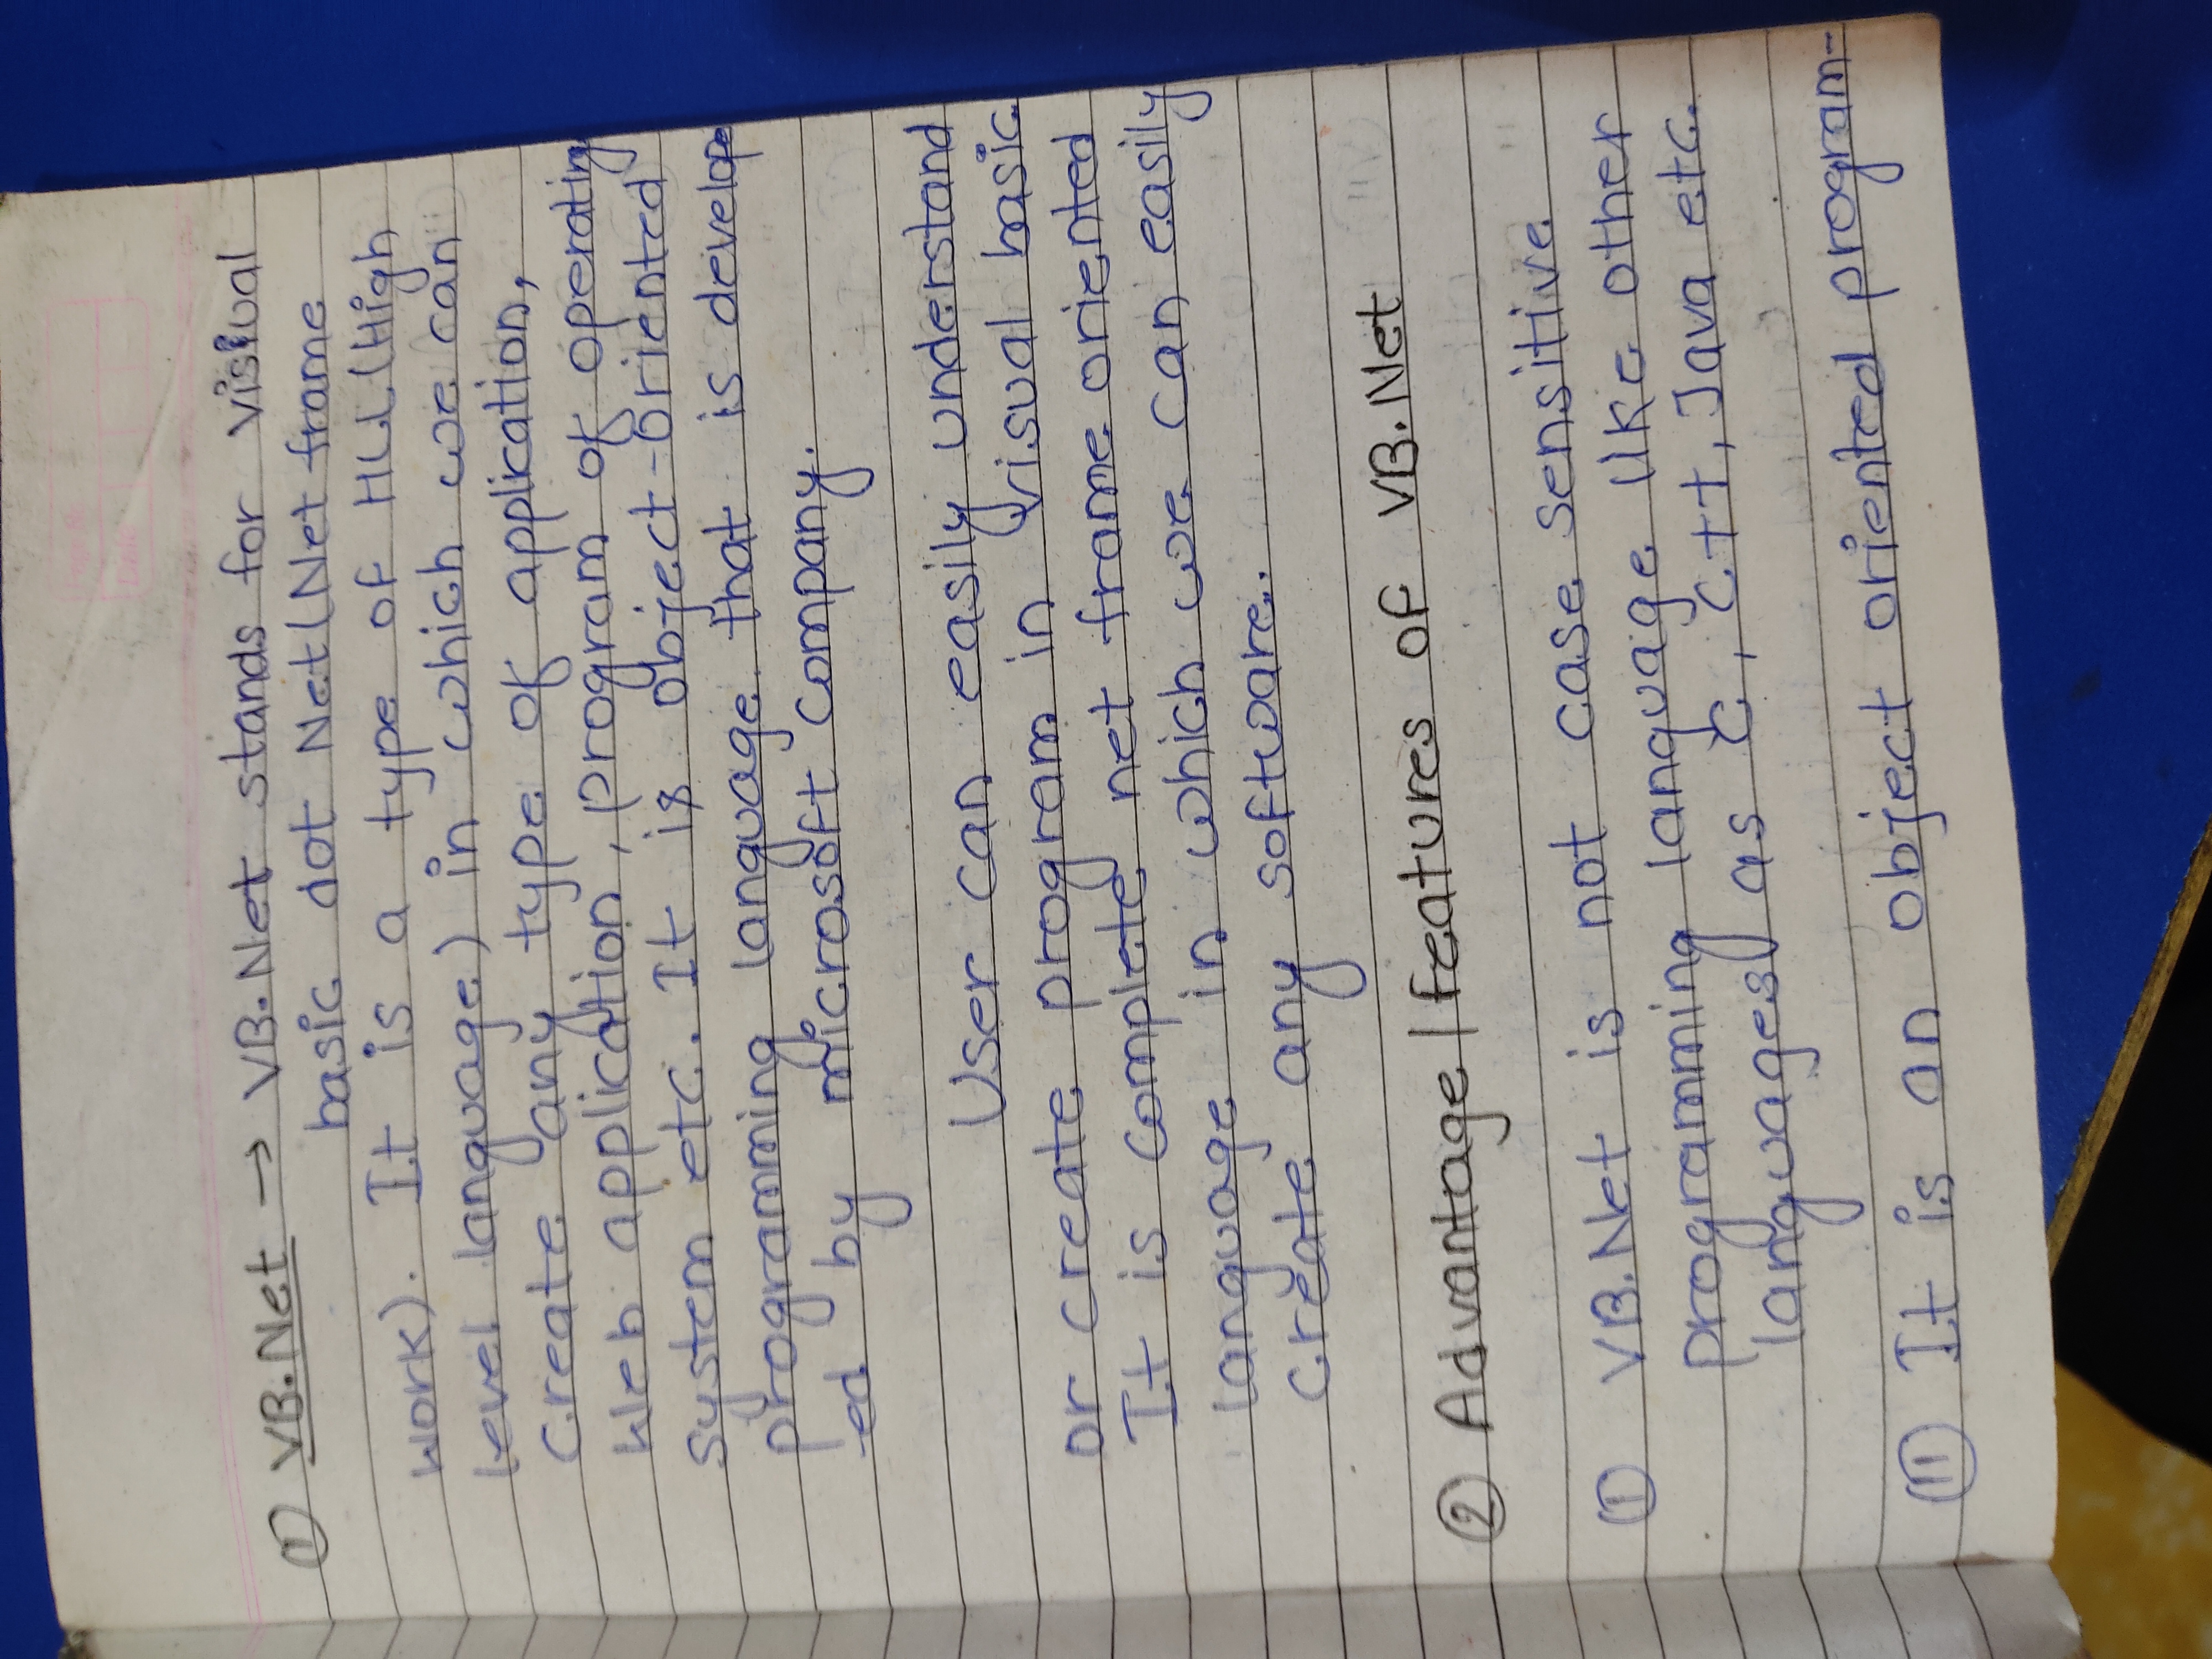 ① VB.Net → VB.Net stands for visual
basic dot Net(Net frame
work). It is a type of HLL(High
level language) in which we can
create any type of application,
Web application, program of operating
system etc. It is object-oriented
programming language that is develop
-ed by microsoft company.
User can easily understand
or create program in visual basic.
It is complete net frame oriented
language in which we can easily
create any software.
② Advantage/features of VB.Net
① VB.Net is not case sensitive
programming language like other
languages as C, C++, Java etc.
⑪ It is an object oriented program-